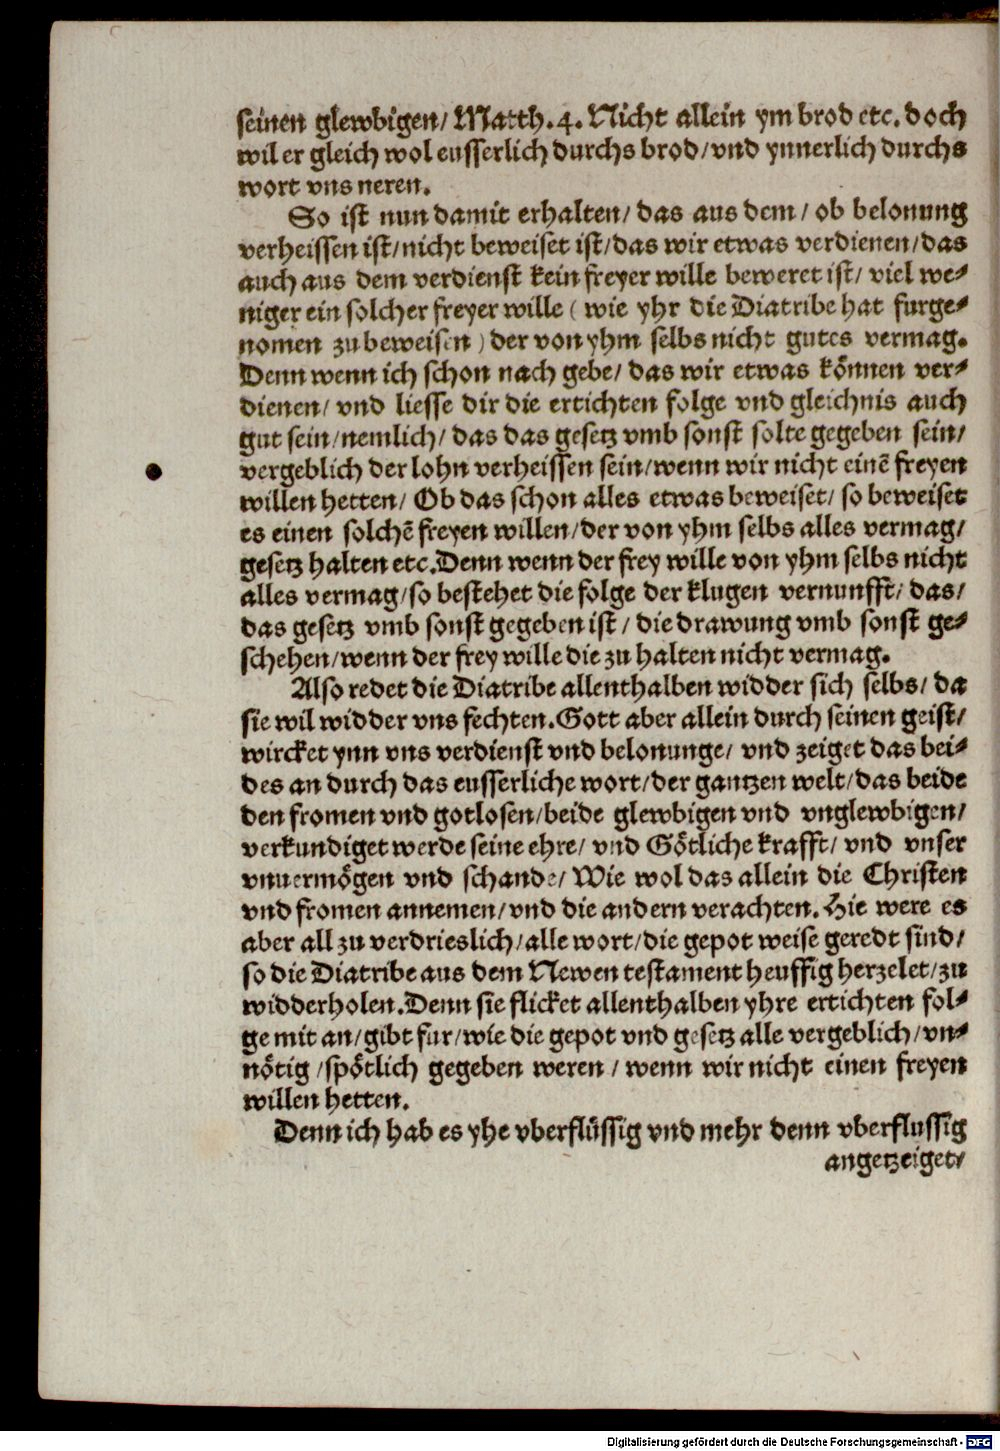 seinen glewbigen/ Matth. 4. Nicht allein ym brod etc. doch
wil er gleich wol eusserlich durchs brod/ vnd ynnerlich durchs
wort vns neren.
So ist nun damit erhalten/ das aus dem/ ob belonung
verheissen ist/ nicht beweiset ist/ das wir etwas verdienen/ das
auch aus dem verdienst kein freyer wille beweret ist/ viel we-
niger ein solcher freyer wille ( wie yhr die Diatribe hat furge-
nomen zu beweisen ) der von yhm selbs nicht gutes vermag.
Denn wenn ich schon nach gebe/ das wir etwas können ver-
dienen/ vnd liesse dir die ertichten folge vnd gleichnis auch
gut sein/ nemlich/ das das gesetz vmb sonst solte gegeben sein/
vergeblich der lohn verheissen sein/ wenn wir nicht einẽ freyen
willen hetten/ Ob das schon alles etwas beweiset/ so beweiset
es einen solchẽ freyen willen/ der von yhm selbs alles vermag/
gesetz halten etc. Denn wenn der frey wille von yhm selbs nicht
alles vermag/ so bestehet die folge der klugen vernunfft/ das/
das gesetz vmb sonst gegeben ist/ die drawung vmb sonst ge-
schehen/ wenn der frey wille die zu halten nicht vermag.
Also redet die Diatribe allenthalben widder sich selbs/ da
sie wil widder vns fechten. Gott aber allein durch seinen geist/
wircket ynn vns verdienst vnd belonunge/ vnd zeiget das bei-
des an durch das eusserliche wort/ der gantzen welt/ das beide
den fromen vnd gotlosen/ beide glewbigen vnd vnglewbigen/
verkundiget werde seine ehre/ vnd Götliche krafft/ vnd vnser
vnuermögen vnd schande/ Wie wol das allein die Christen
vnd fromen annemen/ vnd die andern verachten. Hie were es
aber all zu verdrieslich/ alle wort/ die gepot weise geredt sind/
so die Diatribe aus dem Newen testament heuffig herzelet/ zu
widderholen. Denn sie flicket allenthalben yhre ertichten fol-
ge mit an/ gibt fur/ wie die gepot vnd gesetz alle vergeblich/ vn-
nötig/ spötlich gegeben weren/ wenn wir nicht einen freyen
willen hetten.
Denn ich hab es yhe vberflüssig vnd mehr denn vberflussig
angetzeiget/
Digitalisierung gefördert durch die Deutsche Forschungsgemeinschaft - DFG